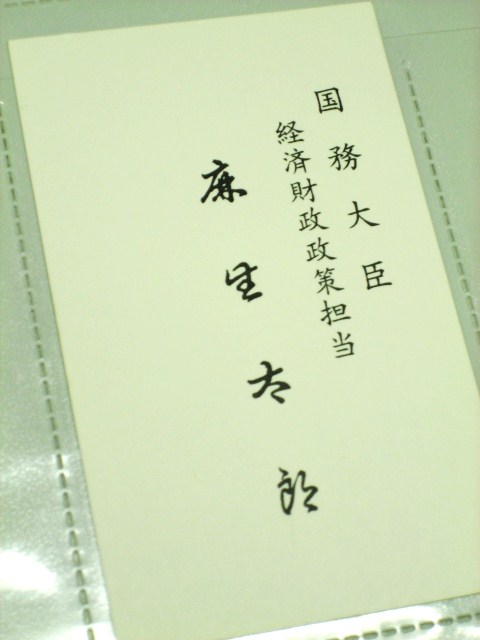 国務大臣
経済財政政策担当
麻生太郎